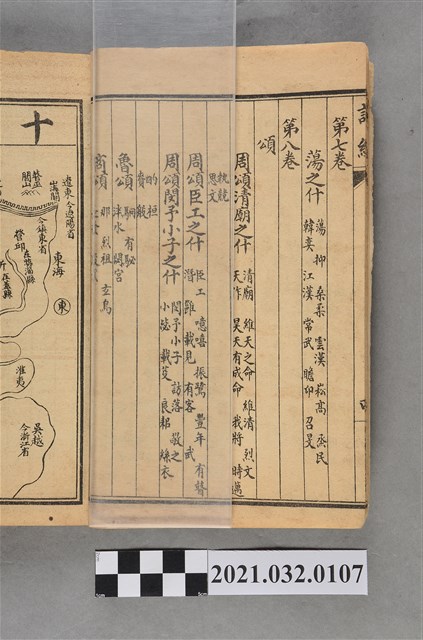 第七卷
蕩之什
蕩 抑 桑柔 雲漢 崧高 烝民
韓奕 江漢 常武 瞻卬 召旻
第八卷
頌
周頌清廟之什
清廟 維天之命 維清 烈文
天作 昊天有成命 我將 時邁
執競
思文
周頌臣工之什
臣工 噫嘻 振鷺 豐年 有瞽
潛 雝 載見 有客 武
周頌閔予小子之什
閔予小子 訪落 敬之
小毖 載芟 良耜 絲衣
酌 桓
賚 般
魯頌
駉 有駜
泮水 閟宮
商頌
那 烈祖 玄鳥
十
遼東今遼陽省
東海
東
淮夷
吳越
今浙江省
2021.032.0107